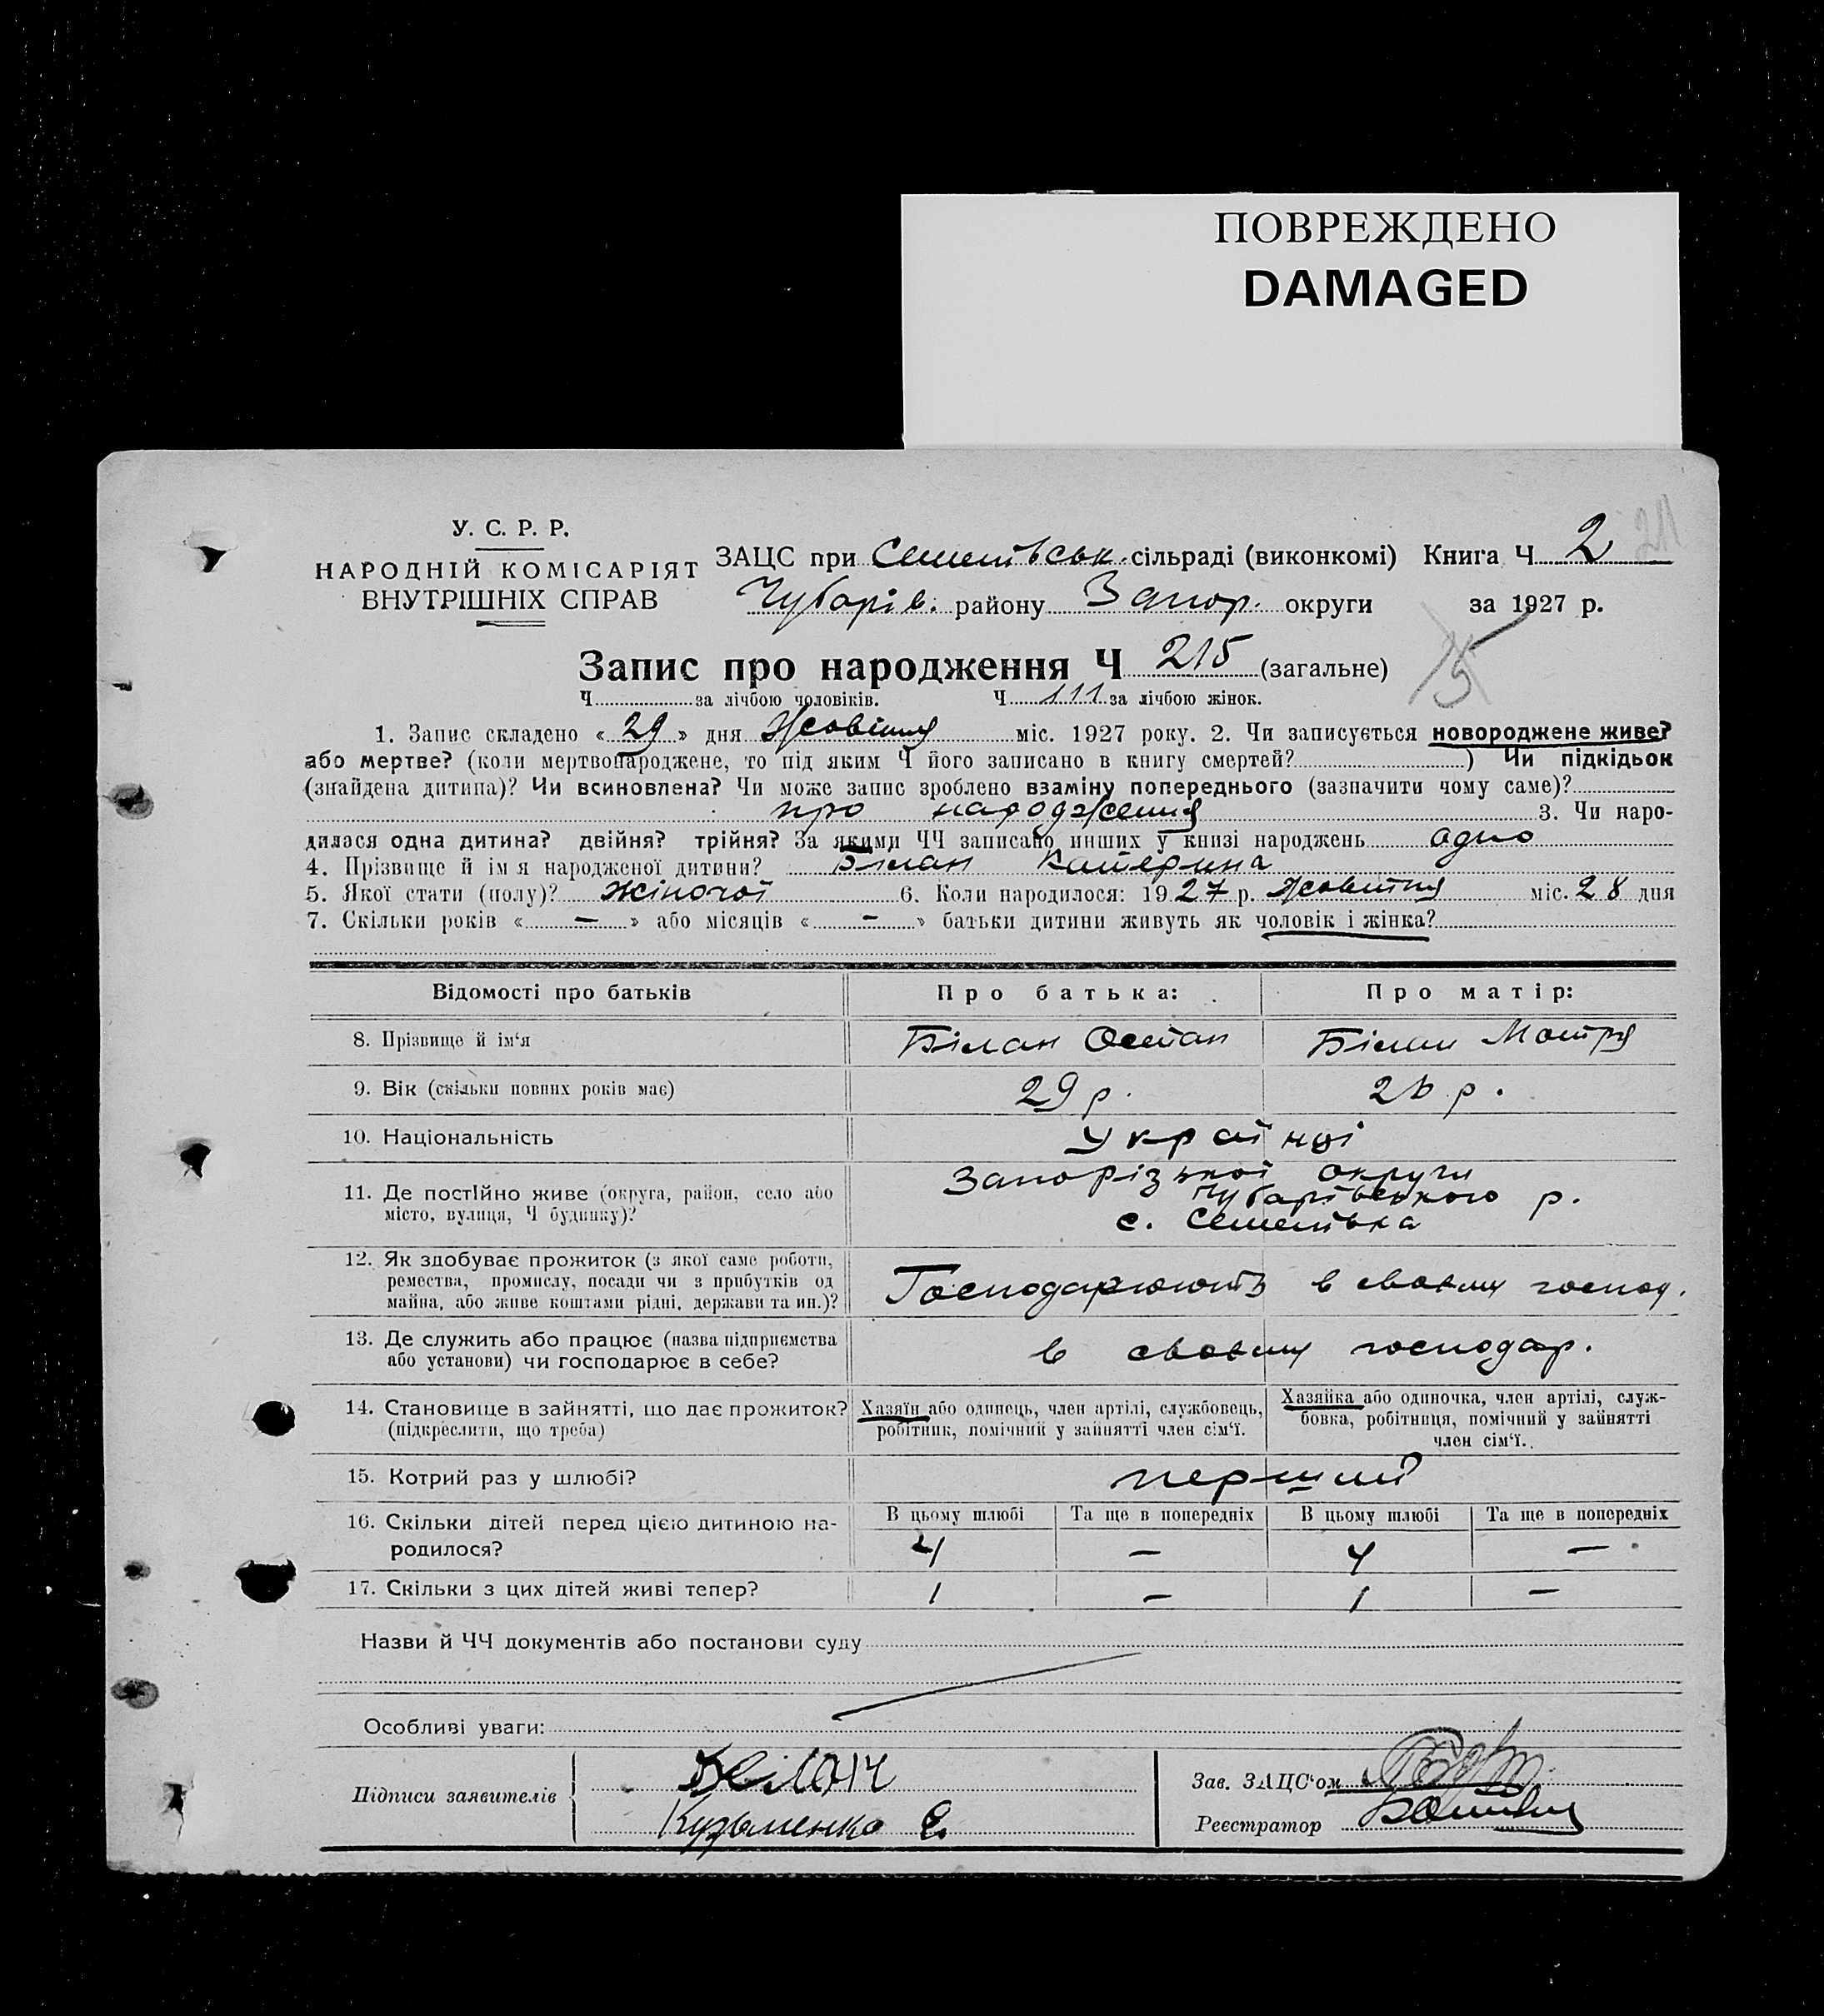 ПОВРЕЖДЕНО
DAMAGED
У. С. Р. Р.
НАРОДНІЙ КОМІСАРІЯТ
ВНУТРІШНІХ СПРАВ
ЗАЦС при Семенівськ. сільраді (виконкомі) Книга Ч 2
Чубарів. району Запор. округи за 1927 р.
Запис про народження Ч 215 (загальне)
Ч за лічбою чоловіків. Ч 111 за лічбою жінок.
1. Запис складено « 29 » дня Жовтня міс. 1927 року. 2. Чи записується новороджене живе?
або мертве? (коли мертвонароджене, то під яким Ч його записано в книгу смертей? ) Чи підкідьок
(знайдена дитина)? Чи всиновлена? Чи може запис зроблено взаміну попереднього (зазначити чому саме)?
про народження 3. Чи наро-
дилася одна дитина? двійня? трійня? За якими ЧЧ записано инших у книзі народжень одно
4. Прізвище й ім я народженої дитини? Білан Катерина
5. Якої стати (полу)? жіночої 6. Коли народилося: 1927 р. Жовтня міс. 28 дня
7. Скільки років « — » або місяців « - » батьки дитини живуть як чоловік і жінка?
Відомості про батьків Про батька: Про матір:
8. Прізвище й ім‘я Білан Остап Білан Мотря
9. Вік (скільки повних років має) 29 р. 26 р.
10. Національність Українці
11. Де постійно живе (округа, район, село або
місто, вулиця, Ч будинку)?
Запорізької округи
Чубарівського р.
с. Семенівка
12. Як здобуває прожиток (з якої саме роботи,
ремества, промислу, посади чи з прибутків од
майна, або живе коштами рідні, держави та ин.)?
Господарюють в своєму господ.
13. Де служить або працює (назва підприємства
або установи) чи господарює в себе?
в своєму господар.
14. Становище в зайнятті, що дає прожиток?
(підкреслити, що треба)
Хазяїн або одинець, член артілі, службовець,
робітник, помічний у зайнятті член сім‘ї.
Хазяйка або одиночка, член артілі, служ-
бовка, робітниця, помічний у зайнятті
член сім‘ї.
15. Котрий раз у шлюбі? перший
16. Скільки дітей перед цією дитиною на-
родилося?
В цьому шлюбі Та ще в попередніх В цьому шлюбі Та ще в попередніх
4 — 4 —
17. Скільки з цих дітей живі тепер? 1 — 1 —
Назви й ЧЧ документів або постанови суду
Особливі уваги:
Підписи заявителів
Білан
Кузьменко Є.
Зав. ЗАЦС‘ом
Реєстратор